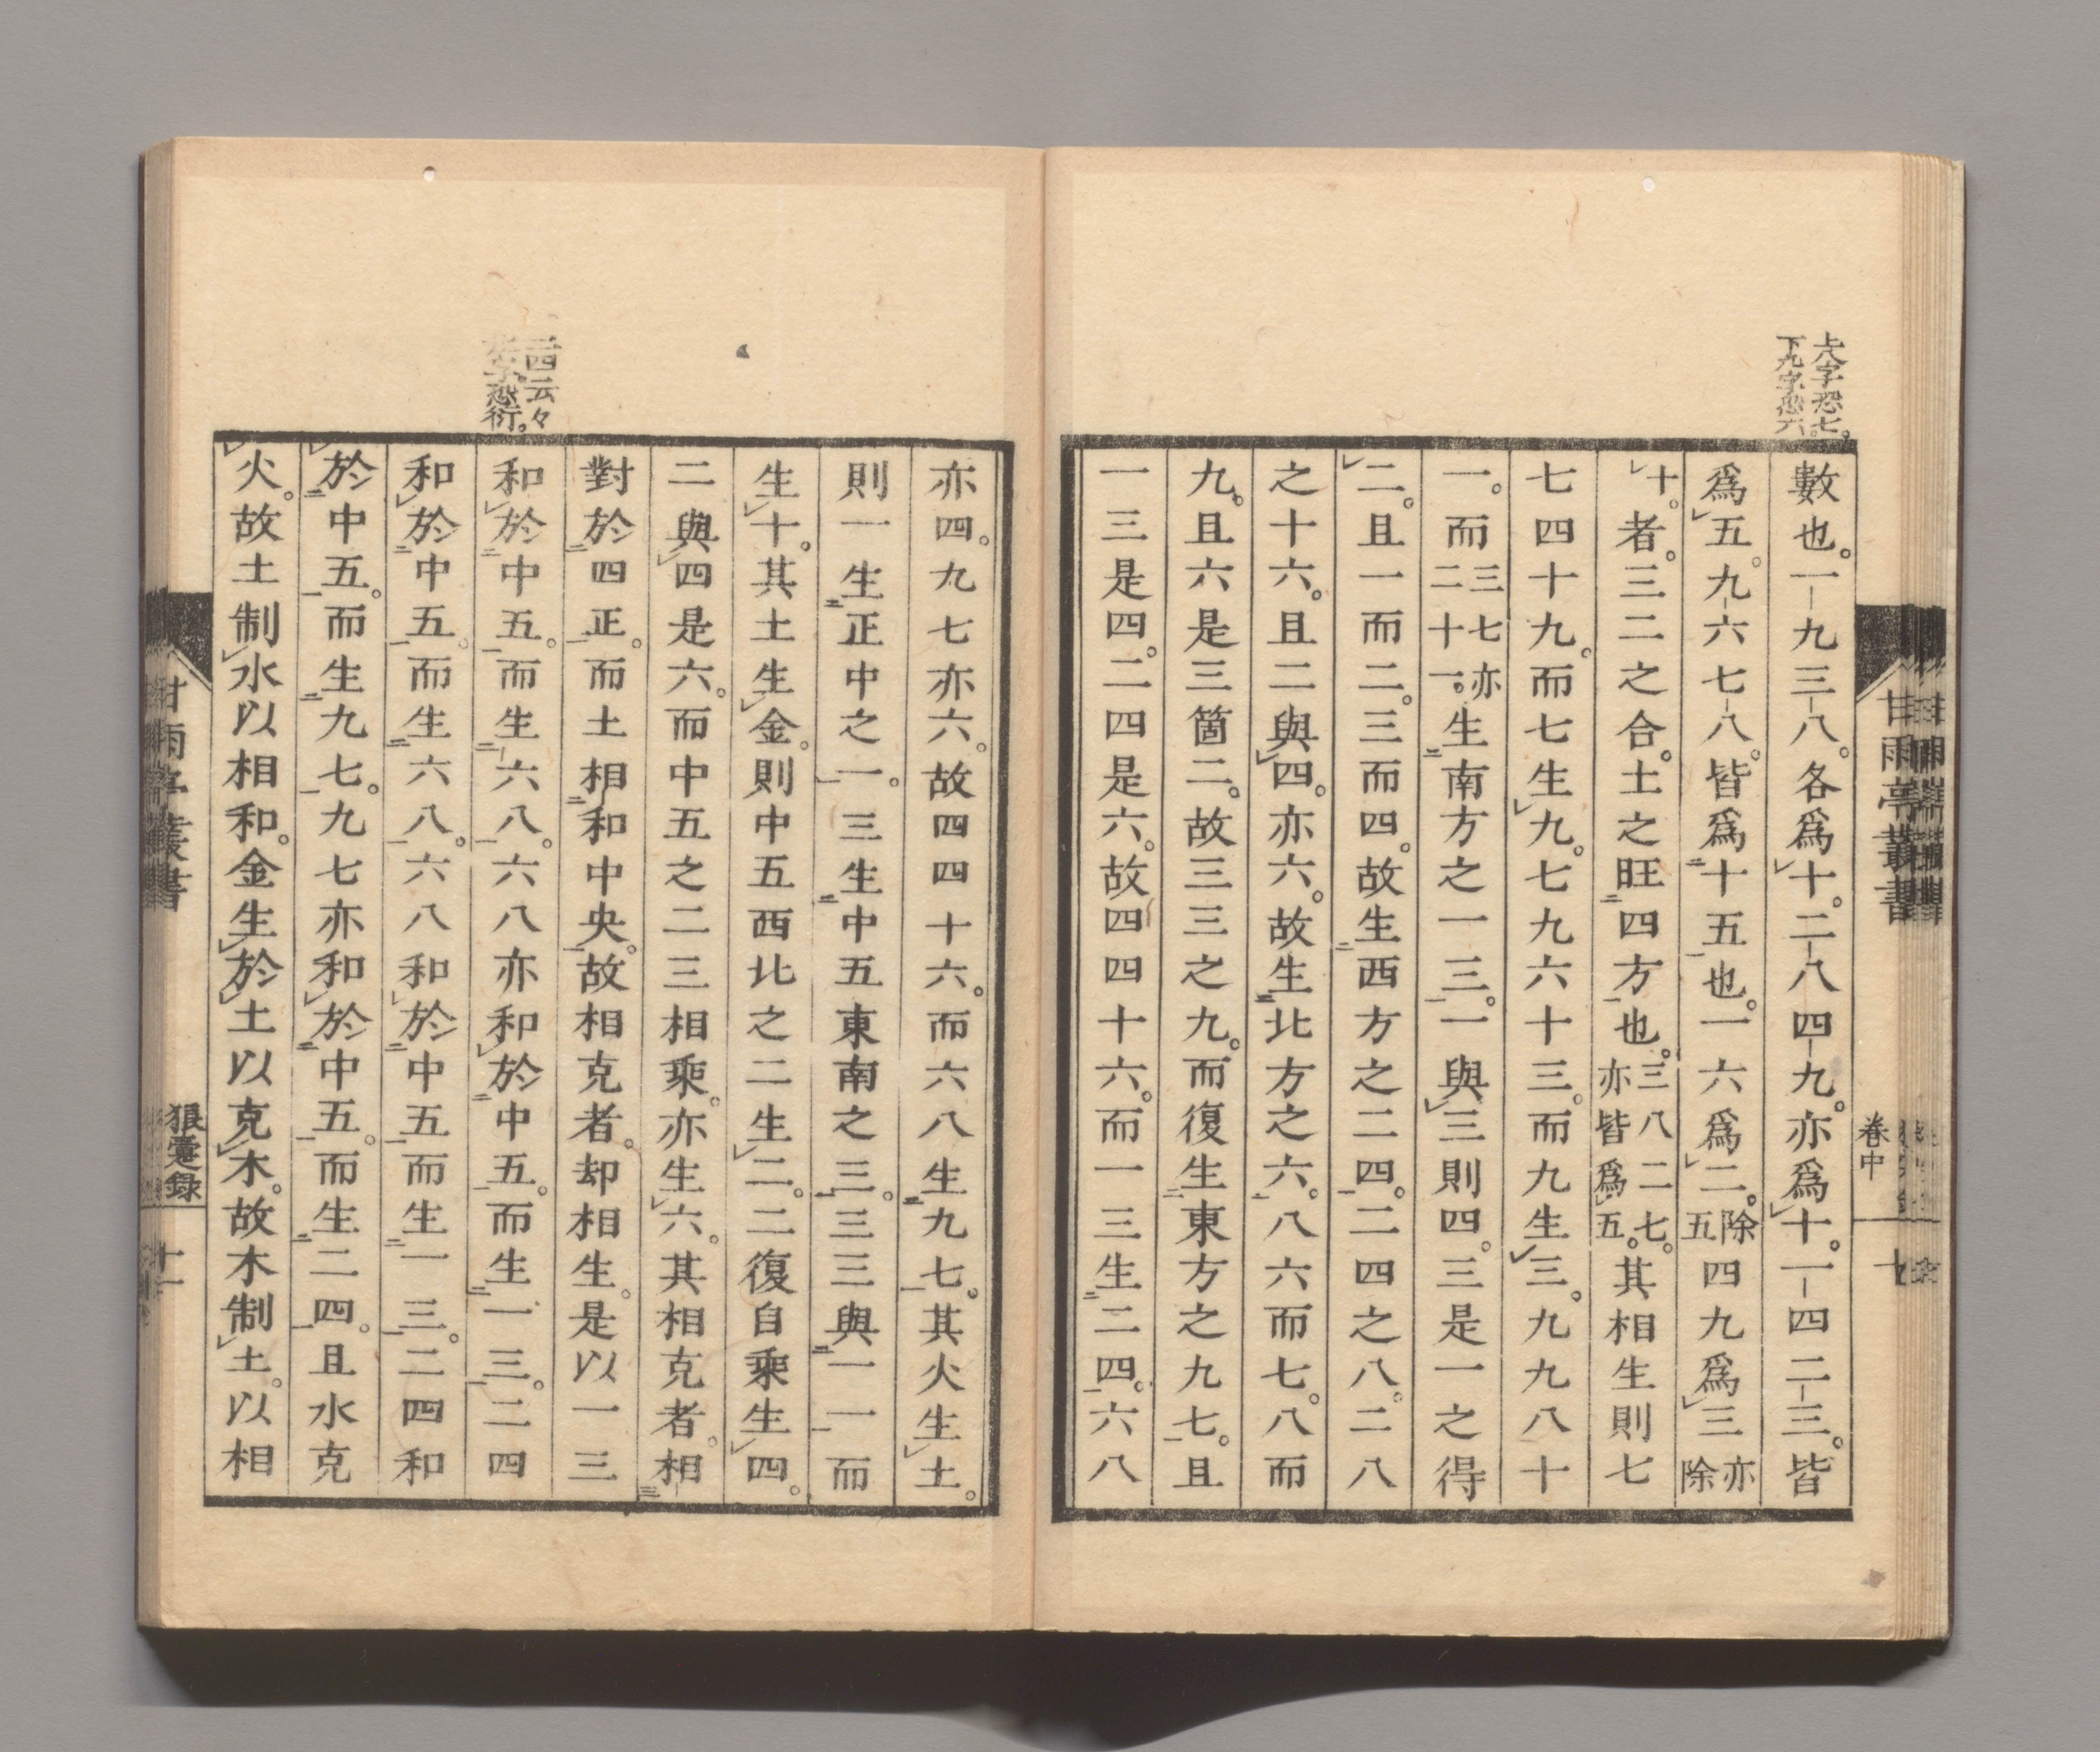 上八字恐七。
下九字恐六。
甘雨亭叢書 卷中 十
數也。一九三八。各爲十。二八四九。亦爲十。一四二三。皆
爲五。九六七八。皆爲十五也。一六爲二。除五四九爲三亦除
十。者。三二之合。土之旺四方也。三八二七。亦皆爲五。其相生則七
七四十九。而七生九。七九六十三。而九生三。九九八十
一。而三七亦二十一。生南方之一三。一與三則四。三是一之得
二。且一而二。三而四。故生西方之二四。二四之八。二八
之十六。且二與四。亦六。故生北方之六。八六而七。八而
九。且六是三箇二。故三三之九。而復生東方之九七。且
一三是四。二四是六。故四四十六。而一三生二四。六八
亦四。九七亦六。故四四十六。而六八生九七。其火生土。
則一生正中之一。三生中五東南之三。三三與一一而
生十。其土生金。則中五西北之二生二。二復自乘生四。
二與四是六。而中五之二三相乘。亦生六。其相克者。相
對於四正。而土相和中央。故相克者。却相生。是以一三
二四云々
字恐衍。
和於中五。而生六八。六八亦和於中五。而生一三。二四
和於中五。而生六八。六八和於中五而生一三。二四和
於中五。而生九七。九七亦和於中五。而生二四。且水克
火。故土制水以相和。金生於土以克木。故木制土。以相
甘雨亭叢書 狼疐録 十一